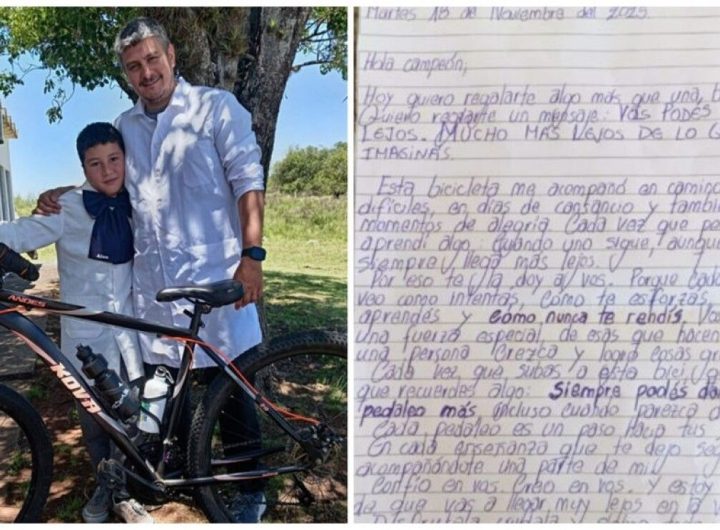 ANDES
NOVA
Martes 18 de Noviembre del 2025.
Hola campeón,
Hoy quiero regalarte algo más que una
Quiero regalarte un mensaje: VOS PODES
LEJOS. MUCHO MAS LEJOS DE LO
IMAGINAS.
Esta bicicleta me acompañó en camino
difíciles, en días de cansancio y tambié
momentos de alegría Cada vez que pe
aprendí algo: cuándo uno sigue, aunqu
siempre llega más lejos.
Por eso te la doy a vos. Porque cada
veo como intentas, cómo te esforzas,
aprendés y cómo nunca te rendís. Vo
una fuerza especial, de esas que hacen
una persona crezca y logre cosas gr
Cada vez que subas a esta bici,
que recuerdes algo: siempre podés da
pedaleo más, incluso cuando parezca
Cada pedaleo es un paso hacia tus
En cada enseñanza que te dejo
acompañándote una parte de mi
Confío en vos. Creo en vos. Y estoy
de que vas a llegar muy lejos en la v